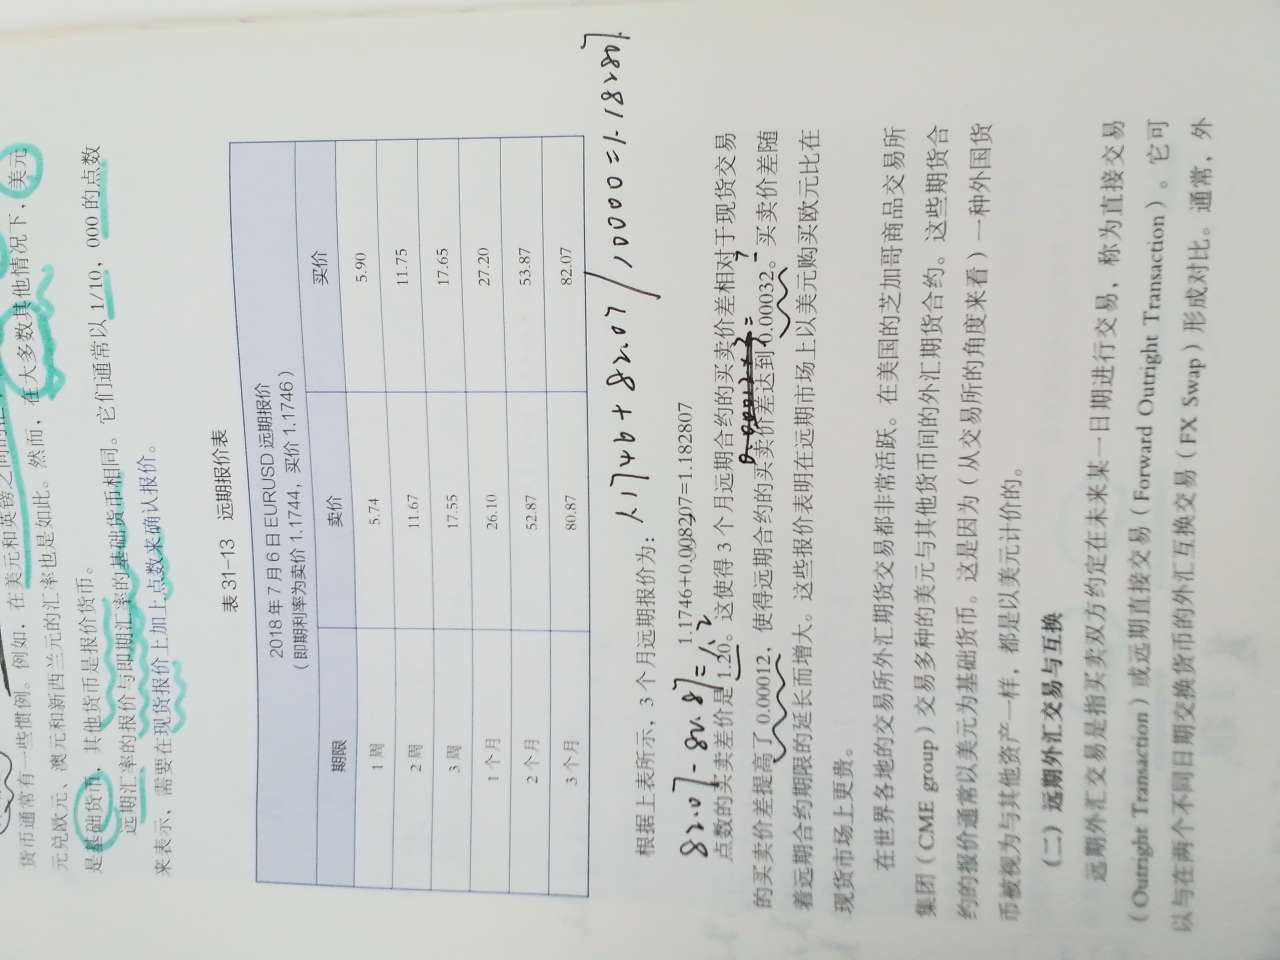 货币通常有一些惯例。例如，在美元和英镑之间的
元兑欧元、澳元和新西兰元的汇率也是如此。然而，在大多数其他情况下，美元
是基础货币，其他货币是报价货币。
远期汇率的报价与即期汇率的基础货币相同。它们通常以 1/10，000 的点数
来表示，需要在现货报价上加上点数来确认报价。
表 31-13 远期报价表
2018 年 7 月 6 日 EURUSD 远期报价
（即期利率为卖价 1.1744，买价 1.1746）
期限 卖价 买价
1 周 5.74 5.90
2 周 11.67 11.75
3 周 17.55 17.65
1 个月 26.10 27.20
2 个月 52.87 53.87
3 个月 80.87 82.07
1.1746+82.07/10000=1.182807
根据上表所示，3 个月远期报价为：
1.1746+0.008207=1.182807
82.07-80.87=1.2
点数的买卖差价是 1.20。这使得 3 个月远期合约的买卖价差相对于现货交易
的买卖价差提高了 0.00012，使得远期合约的买卖价差达到 0.00032。买卖价差随
着远期合约期限的延长而增大。这些报价表明在远期市场上以美元购买欧元比在
现货市场上更贵。
在世界各地的交易所外汇期货交易都非常活跃。在美国的芝加哥商品交易所
集团（CME group）交易多种的美元与其他货币间的外汇期货合约。这些期货合
约的报价通常以美元为基础货币。这是因为（从交易所的角度来看）一种外国货
币被视为与其他资产一样，都是以美元计价的。
（二）远期外汇交易与互换
远期外汇交易是指买卖双方约定在未来某一日期进行交易，称为直接交易
（Outright Transaction）或远期直接交易（Forward Outright Transaction）。它可
以与在两个不同日期交换货币的外汇互换交易（FX Swap）形成对比。通常，外